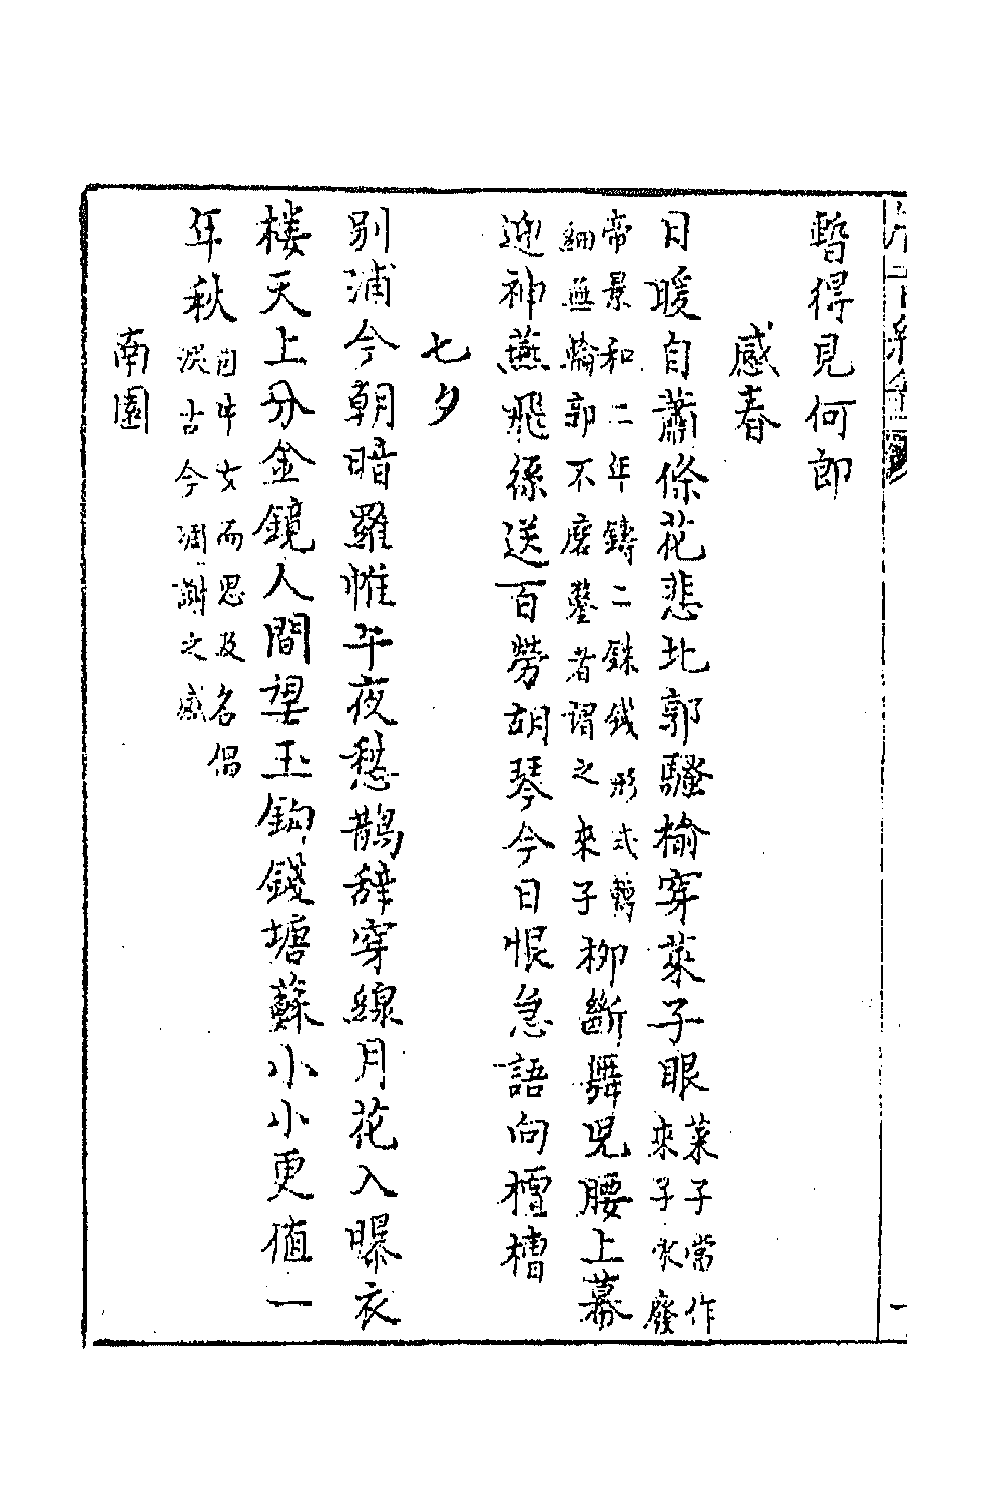 暫得見何郎
感春
日暖自蕭條花悲北郭騷榆穿萊子眼菜子當作來子宋廢
帝景和二年鑄二銖錢形式轉細無輪郭不磨鑿者謂之來子柳斷舞兒腰上幕
迎神燕飛絲送百勞胡琴今日恨急語向檀槽
七夕
別浦今朝暗羅帷午夜愁鵲辭穿線月花入曝衣
樓天上分金鏡人間望玉鈎錢塘蘇小小更值一
年秋因牛女而思及名倡淚古今凋謝之感
南園